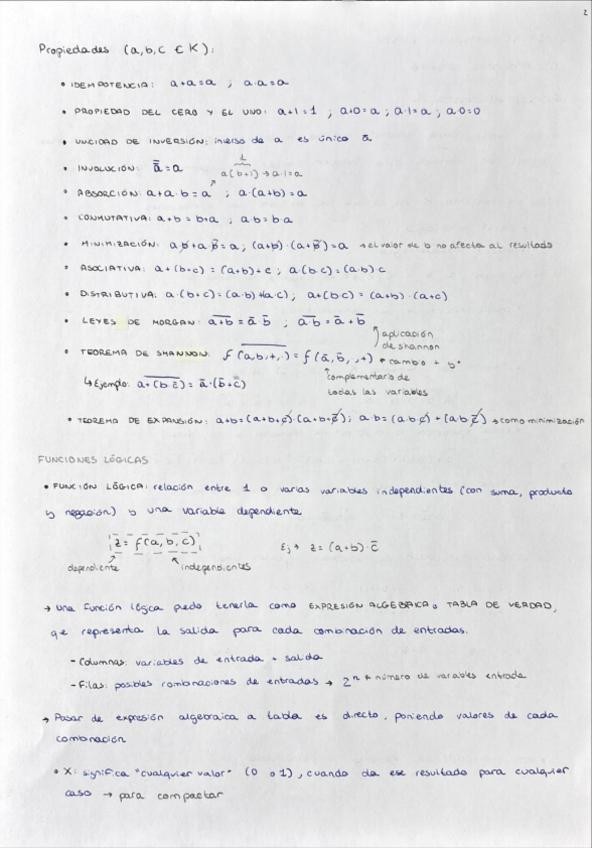 2
Propiedades (a,b,c ∈ K):
• IDEMPOTENCIA: a+a=a ; a·a=a
• PROPIEDAD DEL CERO Y EL UNO: a+1=1 ; a+0=a ; a·1=a ; a·0=0
• UNICIDAD DE INVERSIÓN: inverso de a es único a̅
• INVOLUCIÓN: a̿=a
1
a(b+1)→a·1=a
• ABSORCIÓN: a+a·b=a ; a·(a+b)=a
• CONMUTATIVA: a+b=b+a ; a·b=b·a
• MINIMIZACIÓN: a·b+a·b̅=a; (a+b)·(a+b̅)=a →el valor de b no afecta al resultado
• ASOCIATIVA: a+(b+c)=(a+b)+c ; a(b·c)=(a·b)c
• DISTRIBUTIVA: a·(b+c)=(a·b)+(a·c); a+(b·c)=(a+b)·(a+c)
• LEYES DE MORGAN: a̅+̅b̅=a̅·b̅ ; a̅·̅b̅=a̅+b̅
aplicación
de shannon
• TEOREMA DE SHANNON: f(a,b,+,·)=f(a̅,b̅,·,+) • cambio + y ·
↳Ejemplo: a̅+̅(̅b̅·̅c̅)̅=a̅·(b̅+c̅)
complementario de
todas las variables
• TEOREMA DE EXPANSIÓN: a+b=(a+b+c)·(a+b+c̅); a·b=(a·b·c)+(a·b·c̅) →como minimización
FUNCIONES LÓGICAS
• FUNCIÓN LÓGICA: relación entre 1 o varias variables independientes (con suma, producto
y negación) y una variable dependiente
z=f(a,b,c) Ej→ z=(a+b)·c̅
dependiente independientes
→ Una función lógica puedo tenerla como EXPRESIÓN ALGEBRAICA o TABLA DE VERDAD,
qe representa la salida para cada combinación de entradas.
- Columnas: variables de entrada + salida
- Filas: posibles combinaciones de entradas → 2ⁿ número de variables entrada
→ Pasar de expresión algebraica a tabla es directo, poniendo valores de cada
combinación
• X: significa "cualquier valor" (0 o 1), cuando da ese resultado para cualquier
caso → para compactar